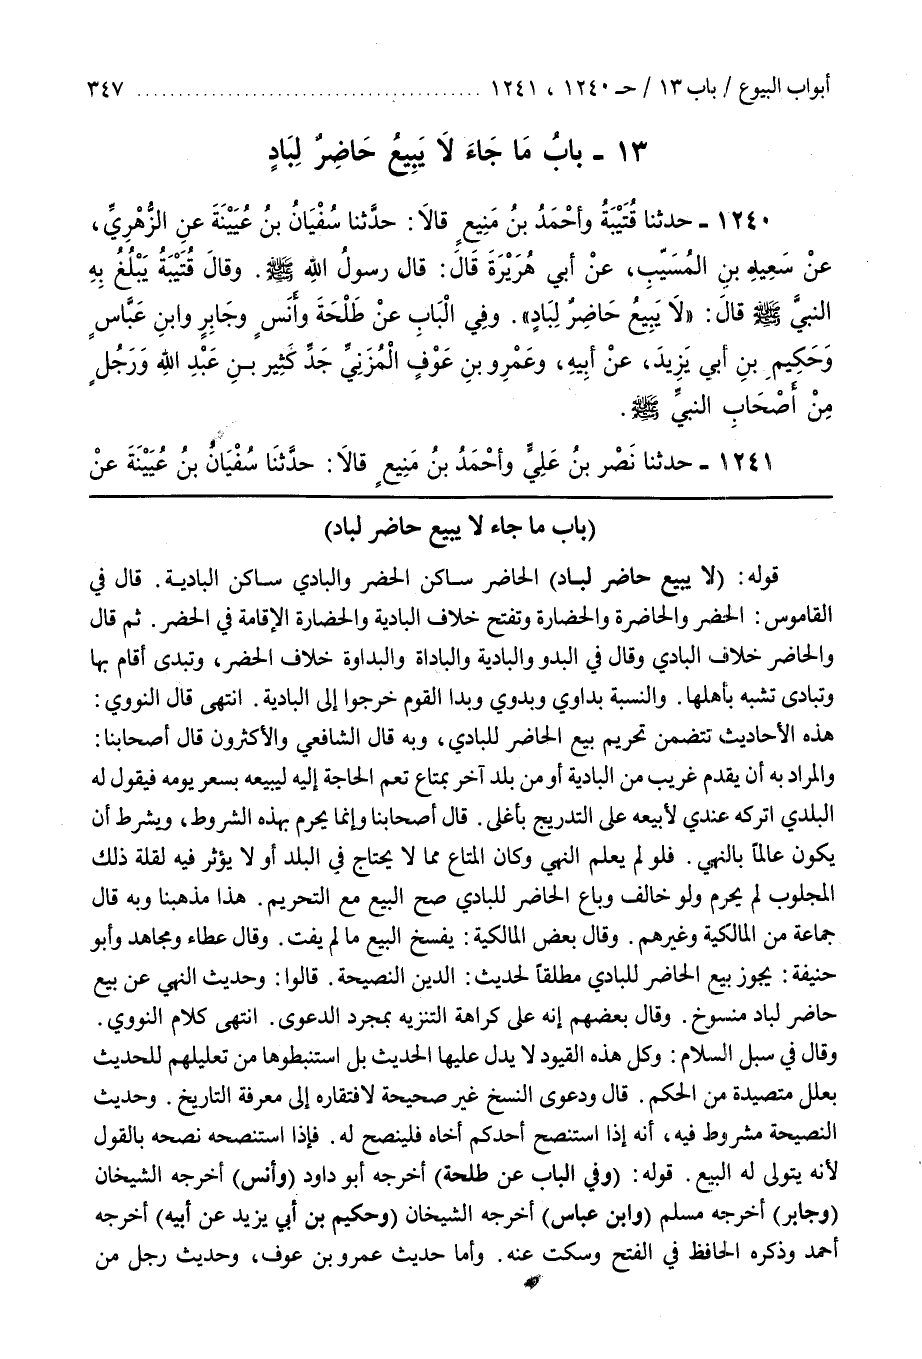 أبواب البيوع / باب ١٣ / حـ ١٢٤٠ ، ١٢٤١ ........................................ ٣٤٧
١٣ ـ بابُ مَا جَاءَ لَا يَبِيعُ حَاضِرٌ لِبَادٍ
١٢٤٠ ـ حدثنا قُتَيْبَةُ وأحْمَدُ بنُ مَنِيعٍ قالَا: حدَّثنا سُفْيَانُ بنُ عُيَيْنَةَ عنِ الزُّهْرِيِّ،
عنْ سَعِيدِ بنِ المُسَيِّبِ، عنْ أبي هُرَيْرَةَ قَالَ: قال رسولُ الله ﷺ. وقالَ قُتَيْبَةُ يَبْلُغُ بِهِ
النبيَّ ﷺ قالَ: «لَا يَبِيعُ حَاضِرٌ لِبَادٍ». وفِي الْبَابِ عنْ طَلْحَةَ وأَنَسٍ وجَابِرٍ وابنِ عَبَّاسٍ
وَحَكِيمِ بنِ أبي يَزِيدَ، عنْ أبِيهِ، وعَمْرِو بنِ عَوْفٍ الْمُزَنِيِّ جَدِّ كَثِيرِ بـنِ عَبْدِ اللهِ وَرَجُلٍ
مِنْ أَصْحَابِ النبيِّ ﷺ.
١٢٤١ ـ حدثنا نَصْرُ بنُ عَلِيٍّ وأحْمَدُ بنُ مَنِيعٍ قالَا: حدَّثَنَا سُفْيَانُ بنُ عُيَيْنَةَ عنْ
(باب ما جاء لا يبيع حاضر لباد)
قوله: (لا يبيع حاضر لبـاد) الحاضر سـاكن الحضر والبادي سـاكن الباديـة. قال في
القاموس: الحضر والحاضرة والحضارة وتفتح خلاف البادية والحضارة الإقامة في الحضر. ثم قال
والحاضر خلاف البادي وقال في البدو والبادية والباداة والبداوة خلاف الحضر، وتبدى أقام بها
وتبادى تشبه بأهلها. والنسبة بداوي وبدوي وبدا القوم خرجوا إلى البادية. انتهى قال النووي:
هذه الأحاديث تتضمن تحريم بيع الحاضر للبادي، وبه قال الشافعي والأكثرون قال أصحابنا:
والمراد به أن يقدم غريب من البادية أو من بلد آخر بمتاع تعم الحاجة إليه ليبيعه بسعر يومه فيقول له
البلدي اتركه عندي لأبيعه على التدريج بأغلى. قال أصحابنا وإنما يحرم بهذه الشروط، ويشرط أن
يكون عالماً بالنهي. فلو لم يعلم النهي وكان المتاع مما لا يحتاج في البلد أو لا يؤثر فيه لقلة ذلك
المجلوب لم يحرم ولو خالف وباع الحاضر للبادي صح البيع مع التحريم. هذا مذهبنا وبه قال
جماعة من المالكية وغيرهم. وقال بعض المالكية: يفسخ البيع ما لم يفت. وقال عطاء ومجاهد وأبو
حنيفة: يجوز بيع الحاضر للبادي مطلقاً لحديث: الدين النصيحة. قالوا: وحديث النهي عن بيع
حاضر لباد منسوخ. وقال بعضهم إنه على كراهة التنزيه بمجرد الدعوى. انتهى كلام النووي.
وقال في سبل السلام: وكل هذه القيود لا يدل عليها الحديث بل استنبطوها من تعليلهم للحديث
بعلل متصيدة من الحكم. قال ودعوى النسخ غير صحيحة لافتقاره إلى معرفة التاريخ. وحديث
النصيحة مشروط فيه، أنه إذا استنصح أحدكم أخاه فلينصح له. فإذا استنصحه نصحه بالقول
لأنه يتولى له البيع. قوله: (وفي الباب عن طلحة) أخرجه أبو داود (وأنس) أخرجه الشيخان
(وجابر) أخرجه مسلم (وابن عباس) أخرجه الشيخان (وحكيم بن أبي يزيد عن أبيه) أخرجه
أحمد وذكره الحافظ في الفتح وسكت عنه. وأما حديث عمرو بن عوف، وحديث رجل من